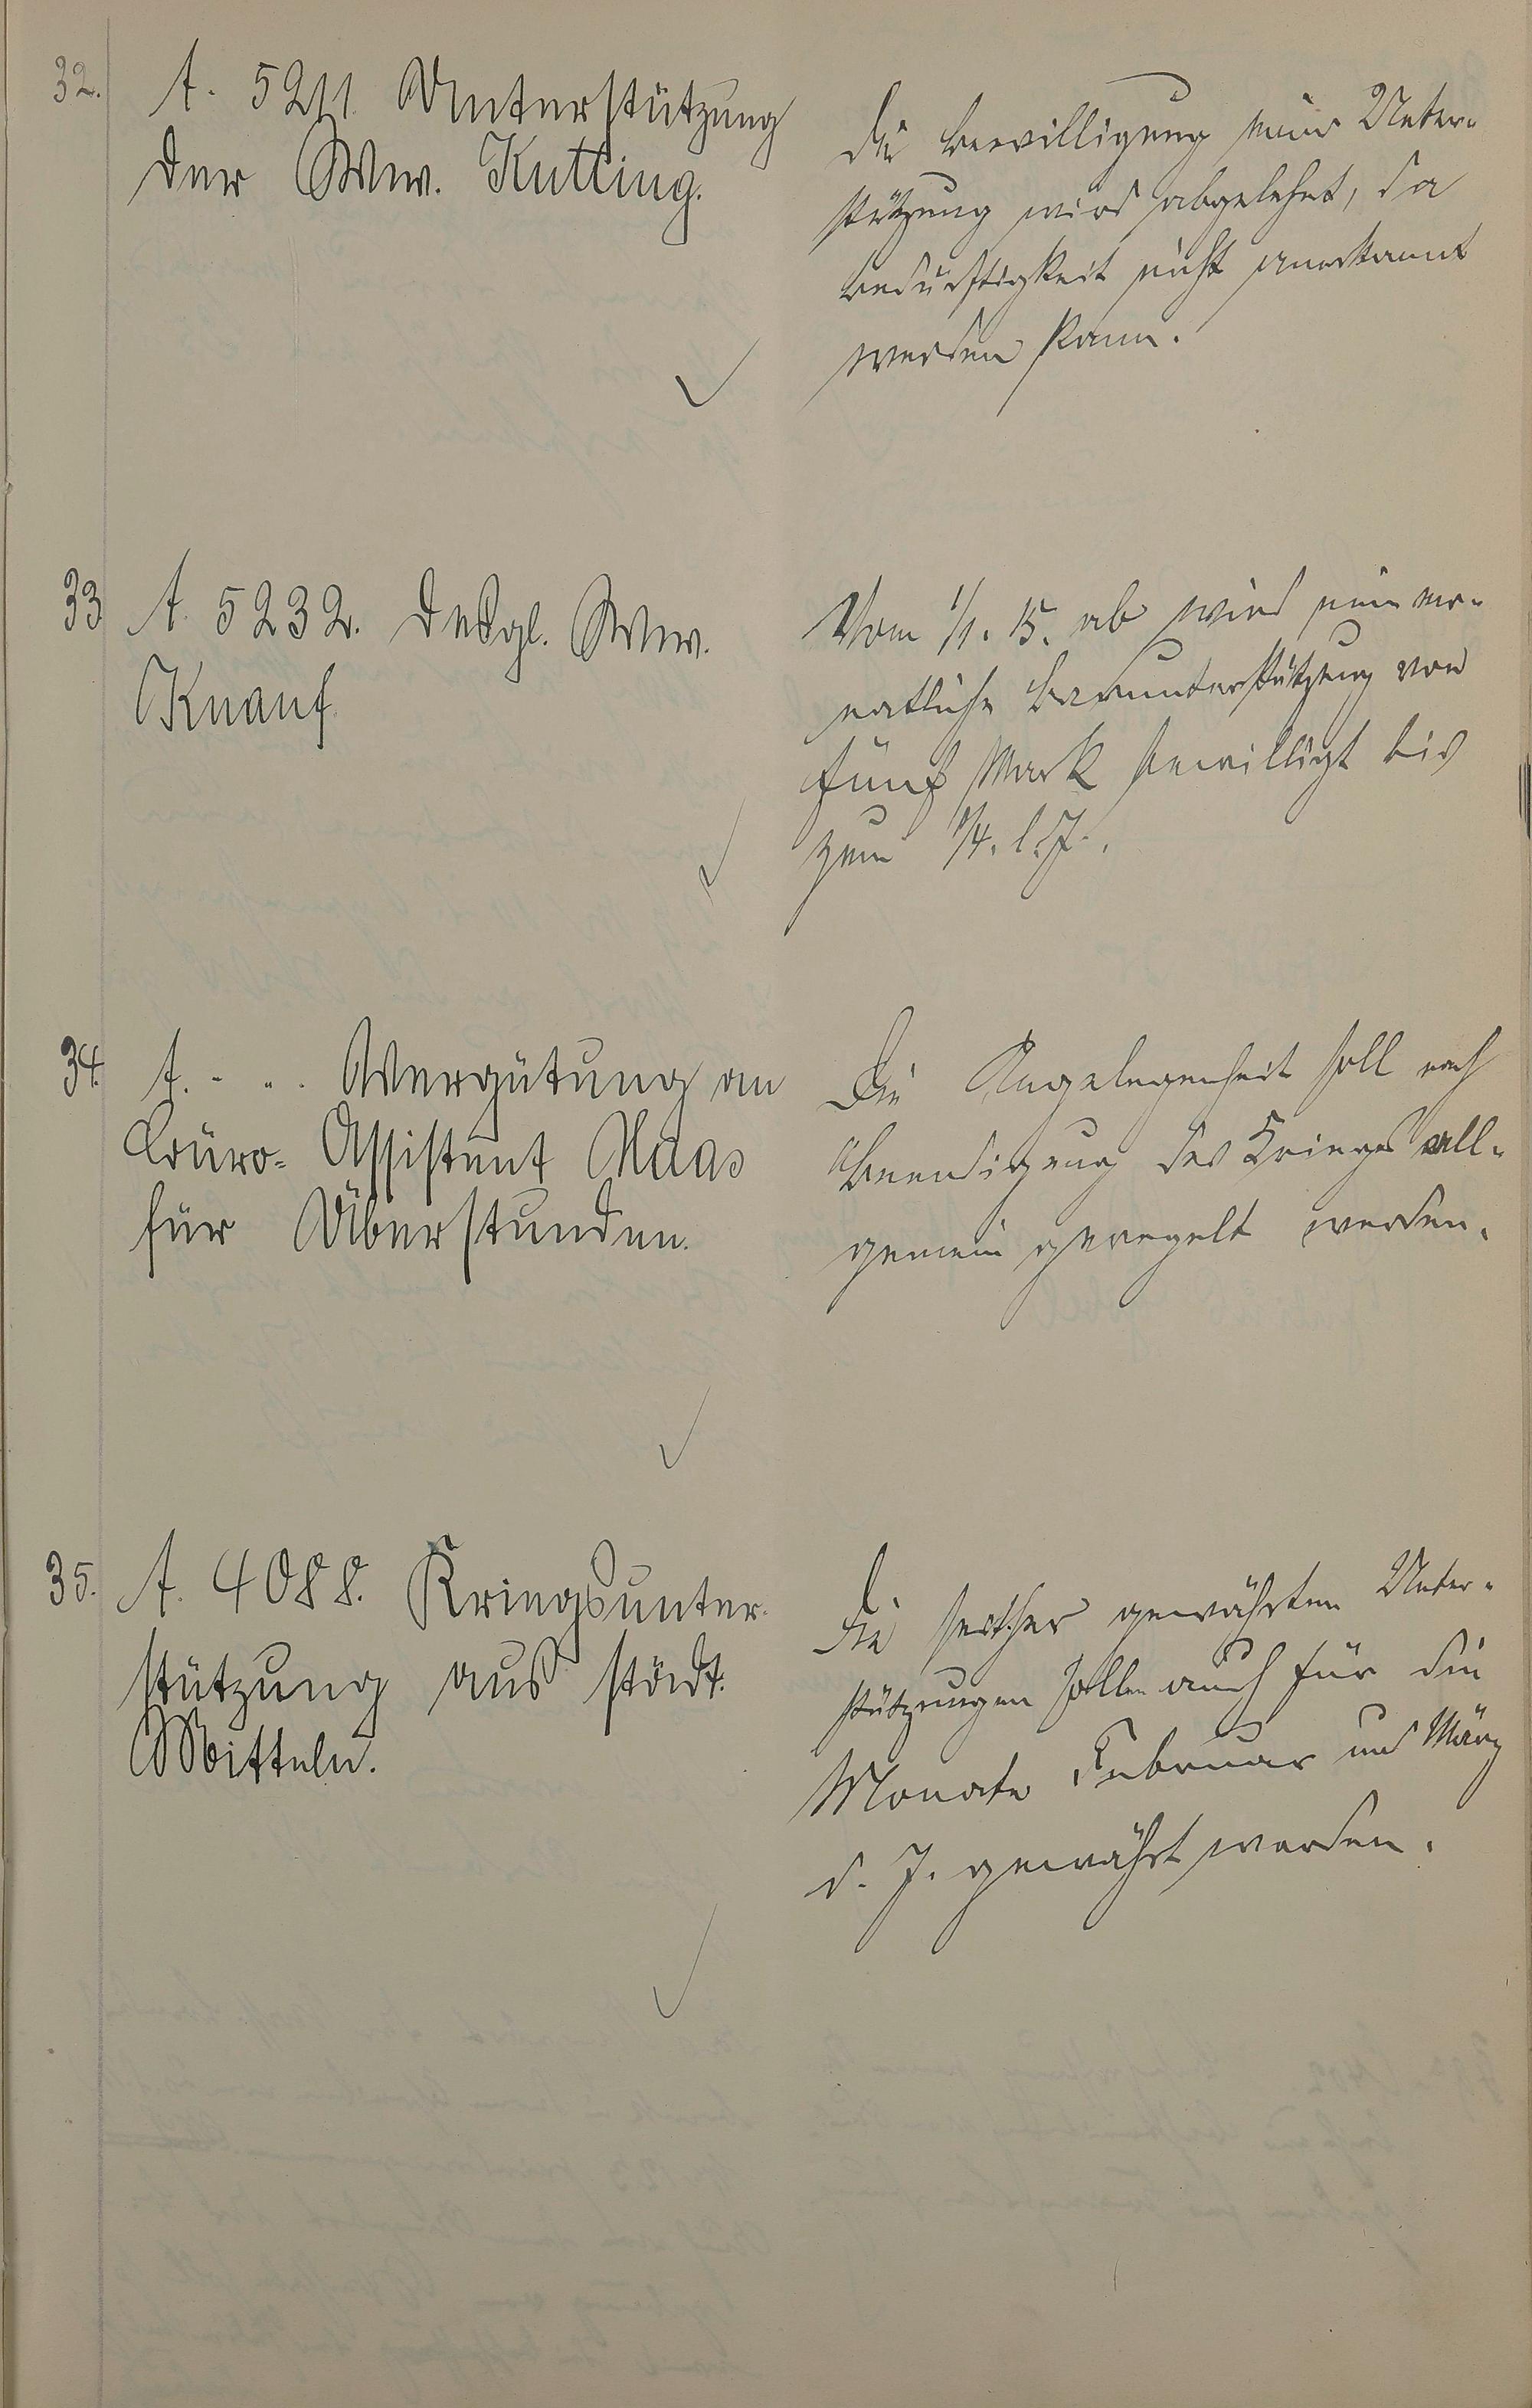 32.
A. 5211. Unterstützung
der Wwe. Kutting.
Die Bewilligung einer Unter-
stützung wird abgelehnt, da
Bedürftigkeit nicht anerkannt
werden kann.
33
A. 5232. Desgl. Wwe.
Knauf
Vom 1/1. 15. ab wird eine mo-
natliche Barunterstützung von
fünf Mark bewilligt bis
zum 1/4. l. J.
34.
A. - „ . Vergütung an
Büro- Assistent Maas
für Überstunden.
Die Angelegenheit soll nach
Beendigung des Krieges all-
gemein geregelt werden.
35.
A. 4088. Kriegsunter-
stützung aus städt.
Mitteln.
Die seither gewährten Unter-
stützungen sollen auch für die
Monate Februar und März
d. J. gewährt werden.